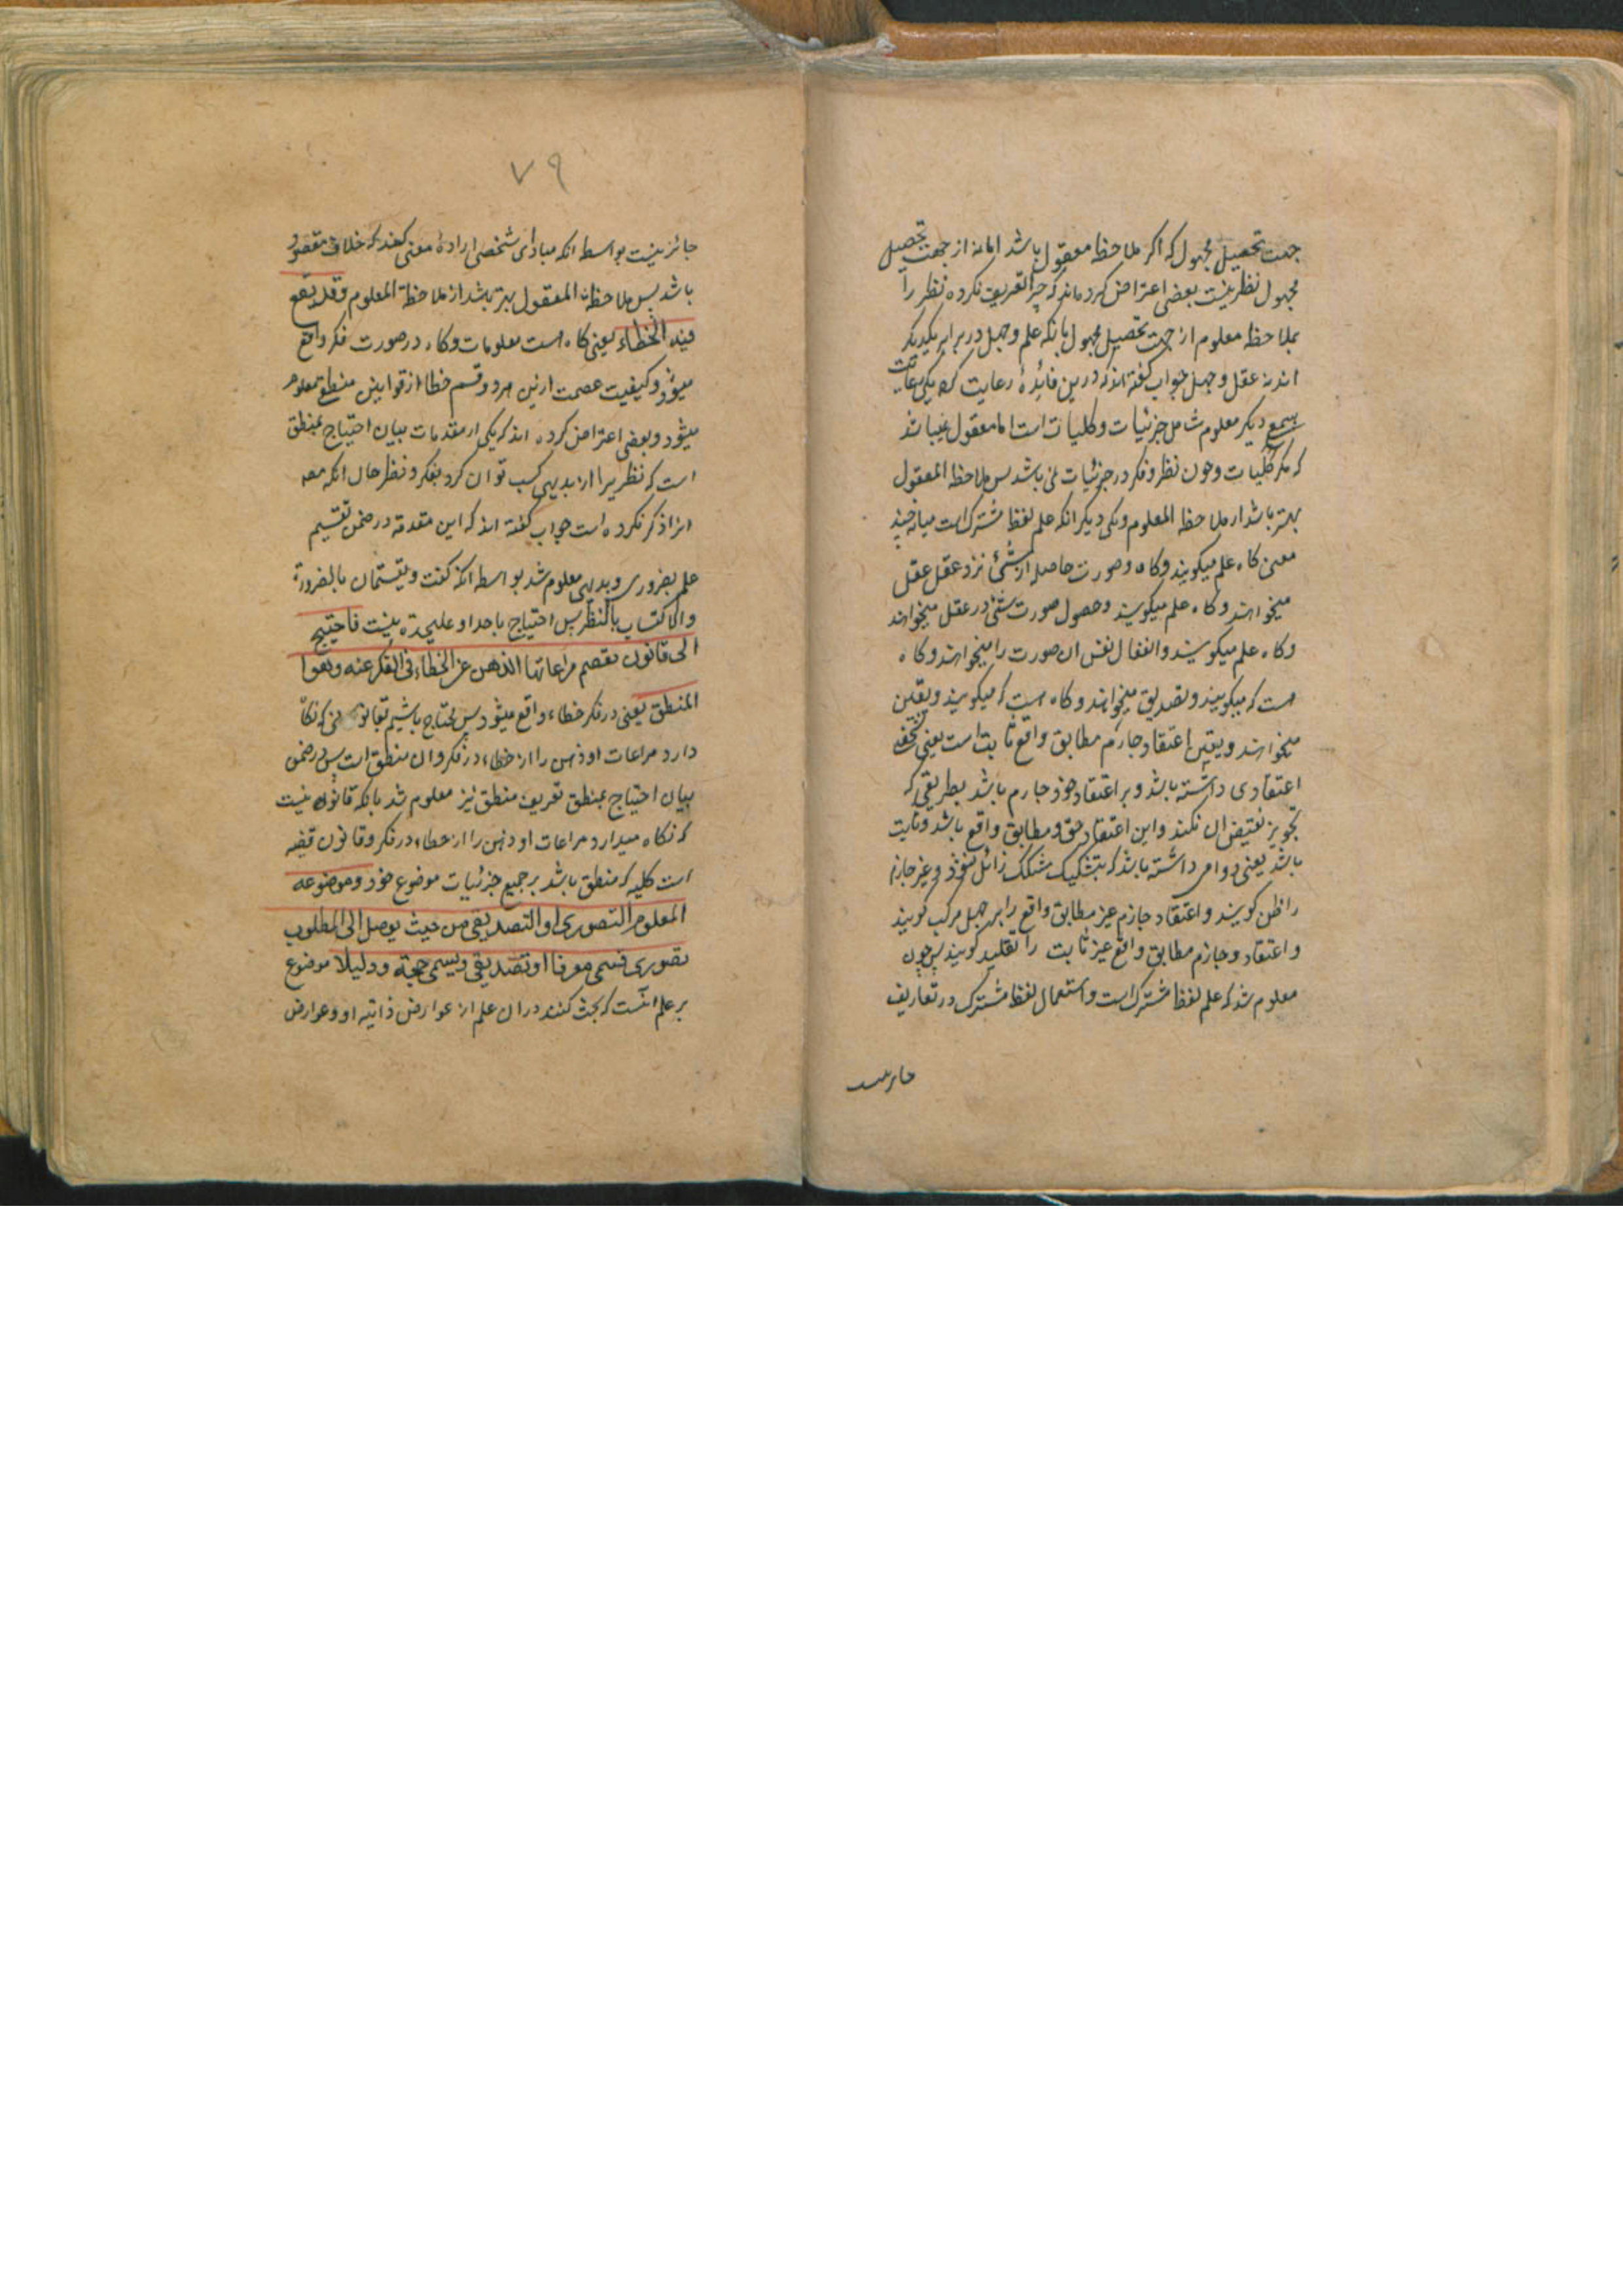 جهت تحصیل مجهول که اکر ملاحظه معقول باشد اما نه از جهت تحصیل
مجهول نظر نیست بعضی اعتراض کرده‌اند که چرا تعریف نکرده نظر را
بملاحظه معلوم از جهت تحصیل مجهول بانکه علم و جهل در برابر یکدیکر
اند نه عقل و جهل جواب کفته اند که درین فائدهٔ رعایت کرده یکی رعایت
سجع دیکر معلوم شامل جزئیات و کلیات است اما معقول نمیباشد
که مکر کلیات و چون نظر و فکر در جزئیات نمی باشد پس ملاحظه المعقول
بهتر باشد از ملاحظه المعلوم و یکی دیکر انکه علم لفظ مشترک است میانه چند
معنی کاه علم میکویند و کاه و صورت حاصله از شئ نزد عقل عقل
میخواهند و کاه علم میکویند و حصول صورت شئ در عقل میخواهند
و کاه علم میکویند و انفعال نفس ان صورت را میخواهند و کاه
هست که میکویند و تصدیق میخواهند و کاه هست که میکویند و یقین
میخواهند و یقین اعتقاد جازم مطابق واقع ثابت است یعنی
اعتقادی داشته باشد و بر اعتقاد خود جازم باشد بطریقی که
تجویز نقیض ان نکند و این اعتقاد حق و مطابق واقع باشد و ثابت
باشد یعنی دوامی داشته باشد که بتشکیک مشکک زائل نشود و غیر جازم
را ظن کویند و اعتقاد جازم غیر مطابق واقع را جهل مرکب کویند
و اعتقاد و جازم مطابق واقع غیر ثابت را تقلید کویند پس چون
معلوم شد که علم لفظ مشترک است و استعمال لفظ مشترک در تعاریف
جایز نیست
۷۹
جائز نیست بواسطه انکه مبادای شخصی ارادهٔ معنی کند که خلاف مقصود
باشد پس ملاحظة المعقول بهتر باشد از ملاحظة المعلوم وقد یقع
فیه الخطاء یعنی کاه هست معلومات و کاه در صورت فکر واقع
میشود و کیفیت عصمت ازین هر دو قسم خطا از قوانین منطق معلوم
میشود و بعضی اعتراض کرده اند که یکی از مقدمات بیان احتیاج بمنطق
است که نظریرا از بدیهی کسب توان کرد بفکر و نظر حال انکه مص
انرا ذکر نکرده است جواب کفته اند که این مقدمه در ضمن تقسیم
علم بضروری و بدیهی معلوم شد بواسطه انکه کفت و یقتسمان بالضرورة
والاکتساب بالنظر پس احتیاج باحد او علیحده نیست فاحتیج
الی قانون تعصم مراعاتها الذهن عن الخطاء فی الفکر عنه و هوا
المنطق یعنی در فکر خطاء واقع میشود پس محتاج باشیم بقانونی که نکاه
دارد مراعات او ذهن را از خطاء در فکر و ان منطق است پس در ضمن
بیان احتیاج بمنطق تعریف منطق نیز معلوم شد بانکه قانون نیست
که نکاه میدارد مراعات او ذهن را از خطاء در فکر و قانون قضیه
است کلیه که منطق باشد بر جمیع جزئیات موضوع خود وموضوعه
المعلوم التصوری او التصدیقی من حیث یوصل الی المطلوب
تصوری فسمی معرفا او تصدیقی ویسمی حجة ودلیلا موضوع
بر علم انست که بحث کنند در ان علم از عوارض ذاتیه او و عوارض